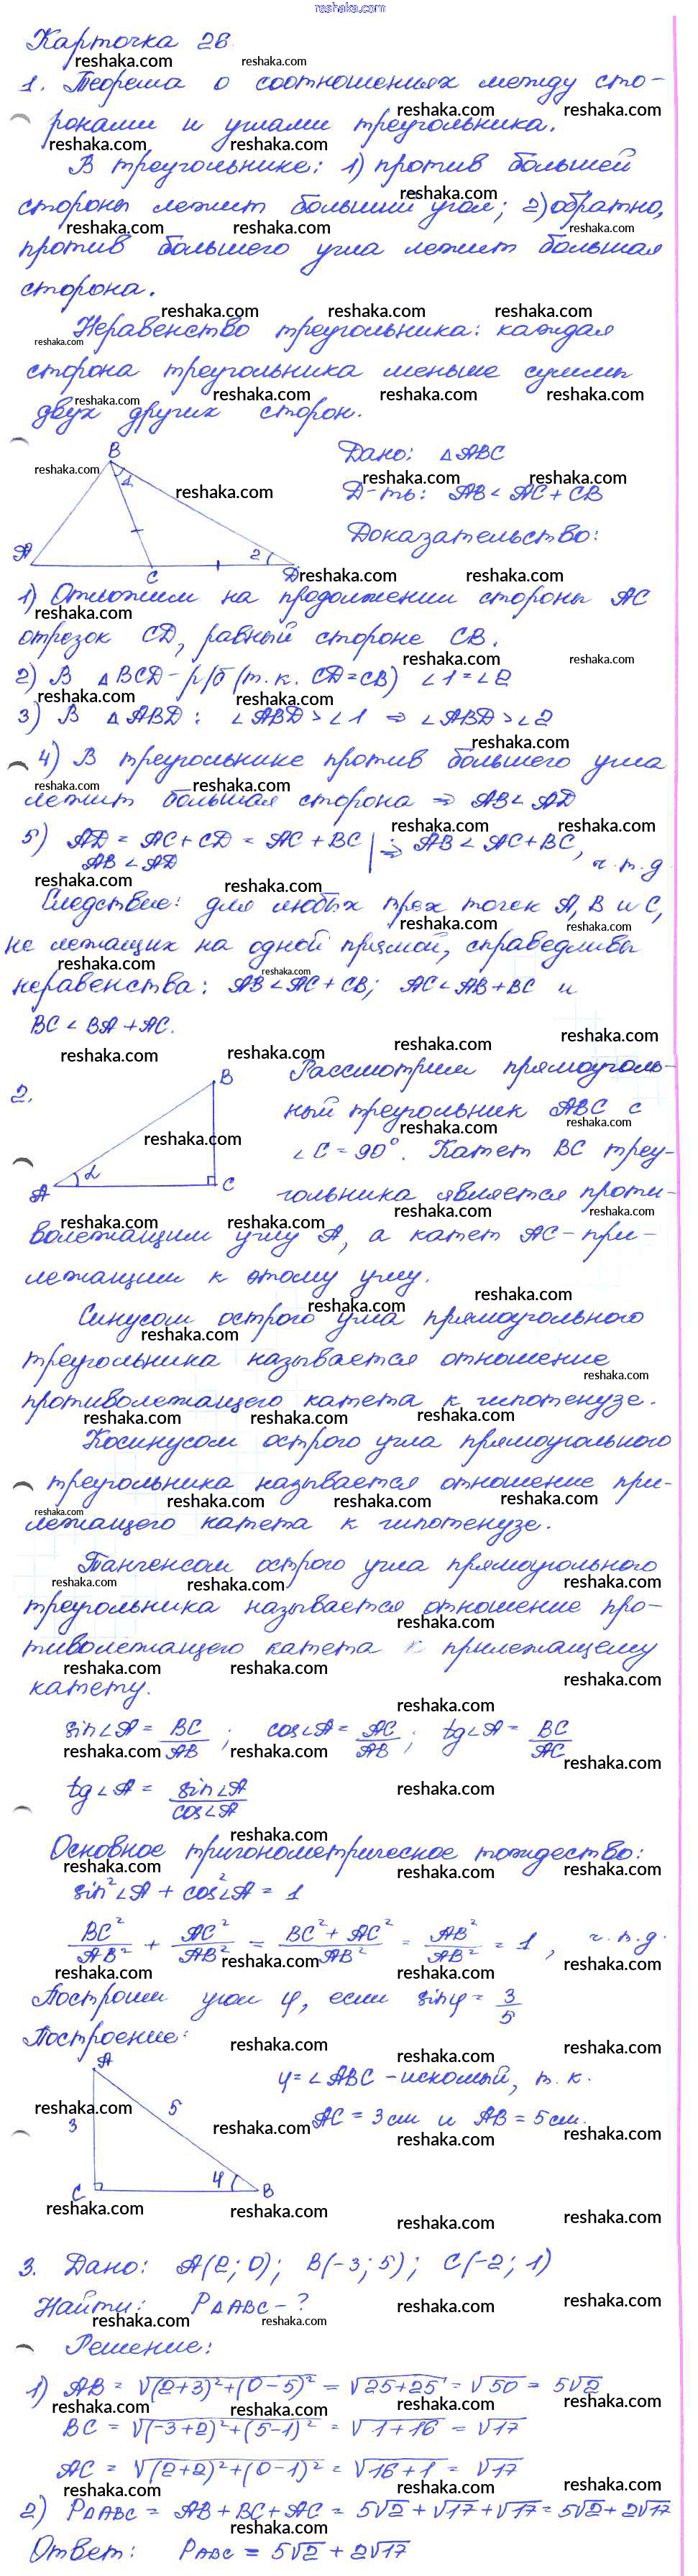 reshaka.com
Карточка 26.
1. Теорема о соотношениях между сто-
ронами и углами треугольника.
В треугольнике: 1) против большей
стороны лежит больший угол; 2) обратно,
против большего угла лежит большая
сторона.
Неравенство треугольника: каждая
сторона треугольника меньше суммы
двух других сторон.
Дано: △ABC
Д-ть: AB < AC + CB
Доказательство:
B
1
A
C
2
D
1) Отложим на продолжении стороны AC
отрезок CD, равный стороне CB.
2) В △BCD - р/б (т.к. CD = CB) ∠1 = ∠2
3) В △ABD: ∠ABD > ∠1 ⇒ ∠ABD > ∠2
4) В треугольнике против большего угла
лежит большая сторона ⇒ AB < AD
5) AD = AC + CD = AC + BC | ⇒ AB < AC + BC,
AB < AD
ч.т.д.
Следствие: для любых трех точек A, B и C,
не лежащих на одной прямой, справедливы
неравенства: AB < AC + CB; AC < AB + BC и
BC < BA + AC.
2.
B
A
α
C
Рассмотрим прямоуголь-
ный треугольник ABC с
∠C = 90°. Катет BC треу-
гольника является проти-
волежащим углу A, а катет AC - при-
лежащим к этому углу.
Синусом острого угла прямоугольного
треугольника называется отношение
противолежащего катета к гипотенузе.
Косинусом острого угла прямоугольного
треугольника называется отношение при-
лежащего катета к гипотенузе.
Тангенсом острого угла прямоугольного
треугольника называется отношение про-
тиволежащего катета к прилежащему
катету.
sin∠A = BC/AB; cos∠A = AC/AB; tg∠A = BC/AC
tg∠A = sin∠A/cos∠A
Основное тригонометрическое тождество:
sin²∠A + cos²∠A = 1
BC²/AB² + AC²/AB² = (BC² + AC²)/AB² = AB²/AB² = 1, ч.т.д.
Построим угол φ, если sinφ = 3/5
Построение:
A
3
5
C
φ
B
φ = ∠ABC - искомый, т.к.
AC = 3 см и AB = 5 см.
3. Дано: A(2; 0); B(-3; 5); C(-2; 1)
Найти: P△ABC - ?
Решение:
1) AB = √((2+3)²+(0-5)²) = √(25+25) = √50 = 5√2
BC = √((-3+2)²+(5-1)²) = √(1+16) = √17
AC = √((2+2)²+(0-1)²) = √(16+1) = √17
2) P△ABC = AB + BC + AC = 5√2 + √17 + √17 = 5√2 + 2√17
Ответ: PABC = 5√2 + 2√17